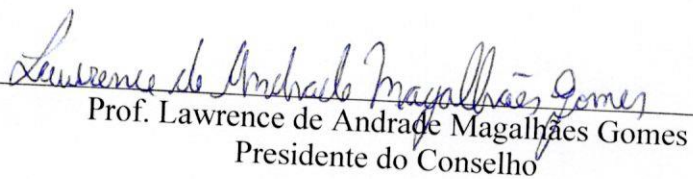 Lawrence de Andrade Magalhães Gomes
Prof. Lawrence de Andrade Magalhães Gomes
Presidente do Conselho